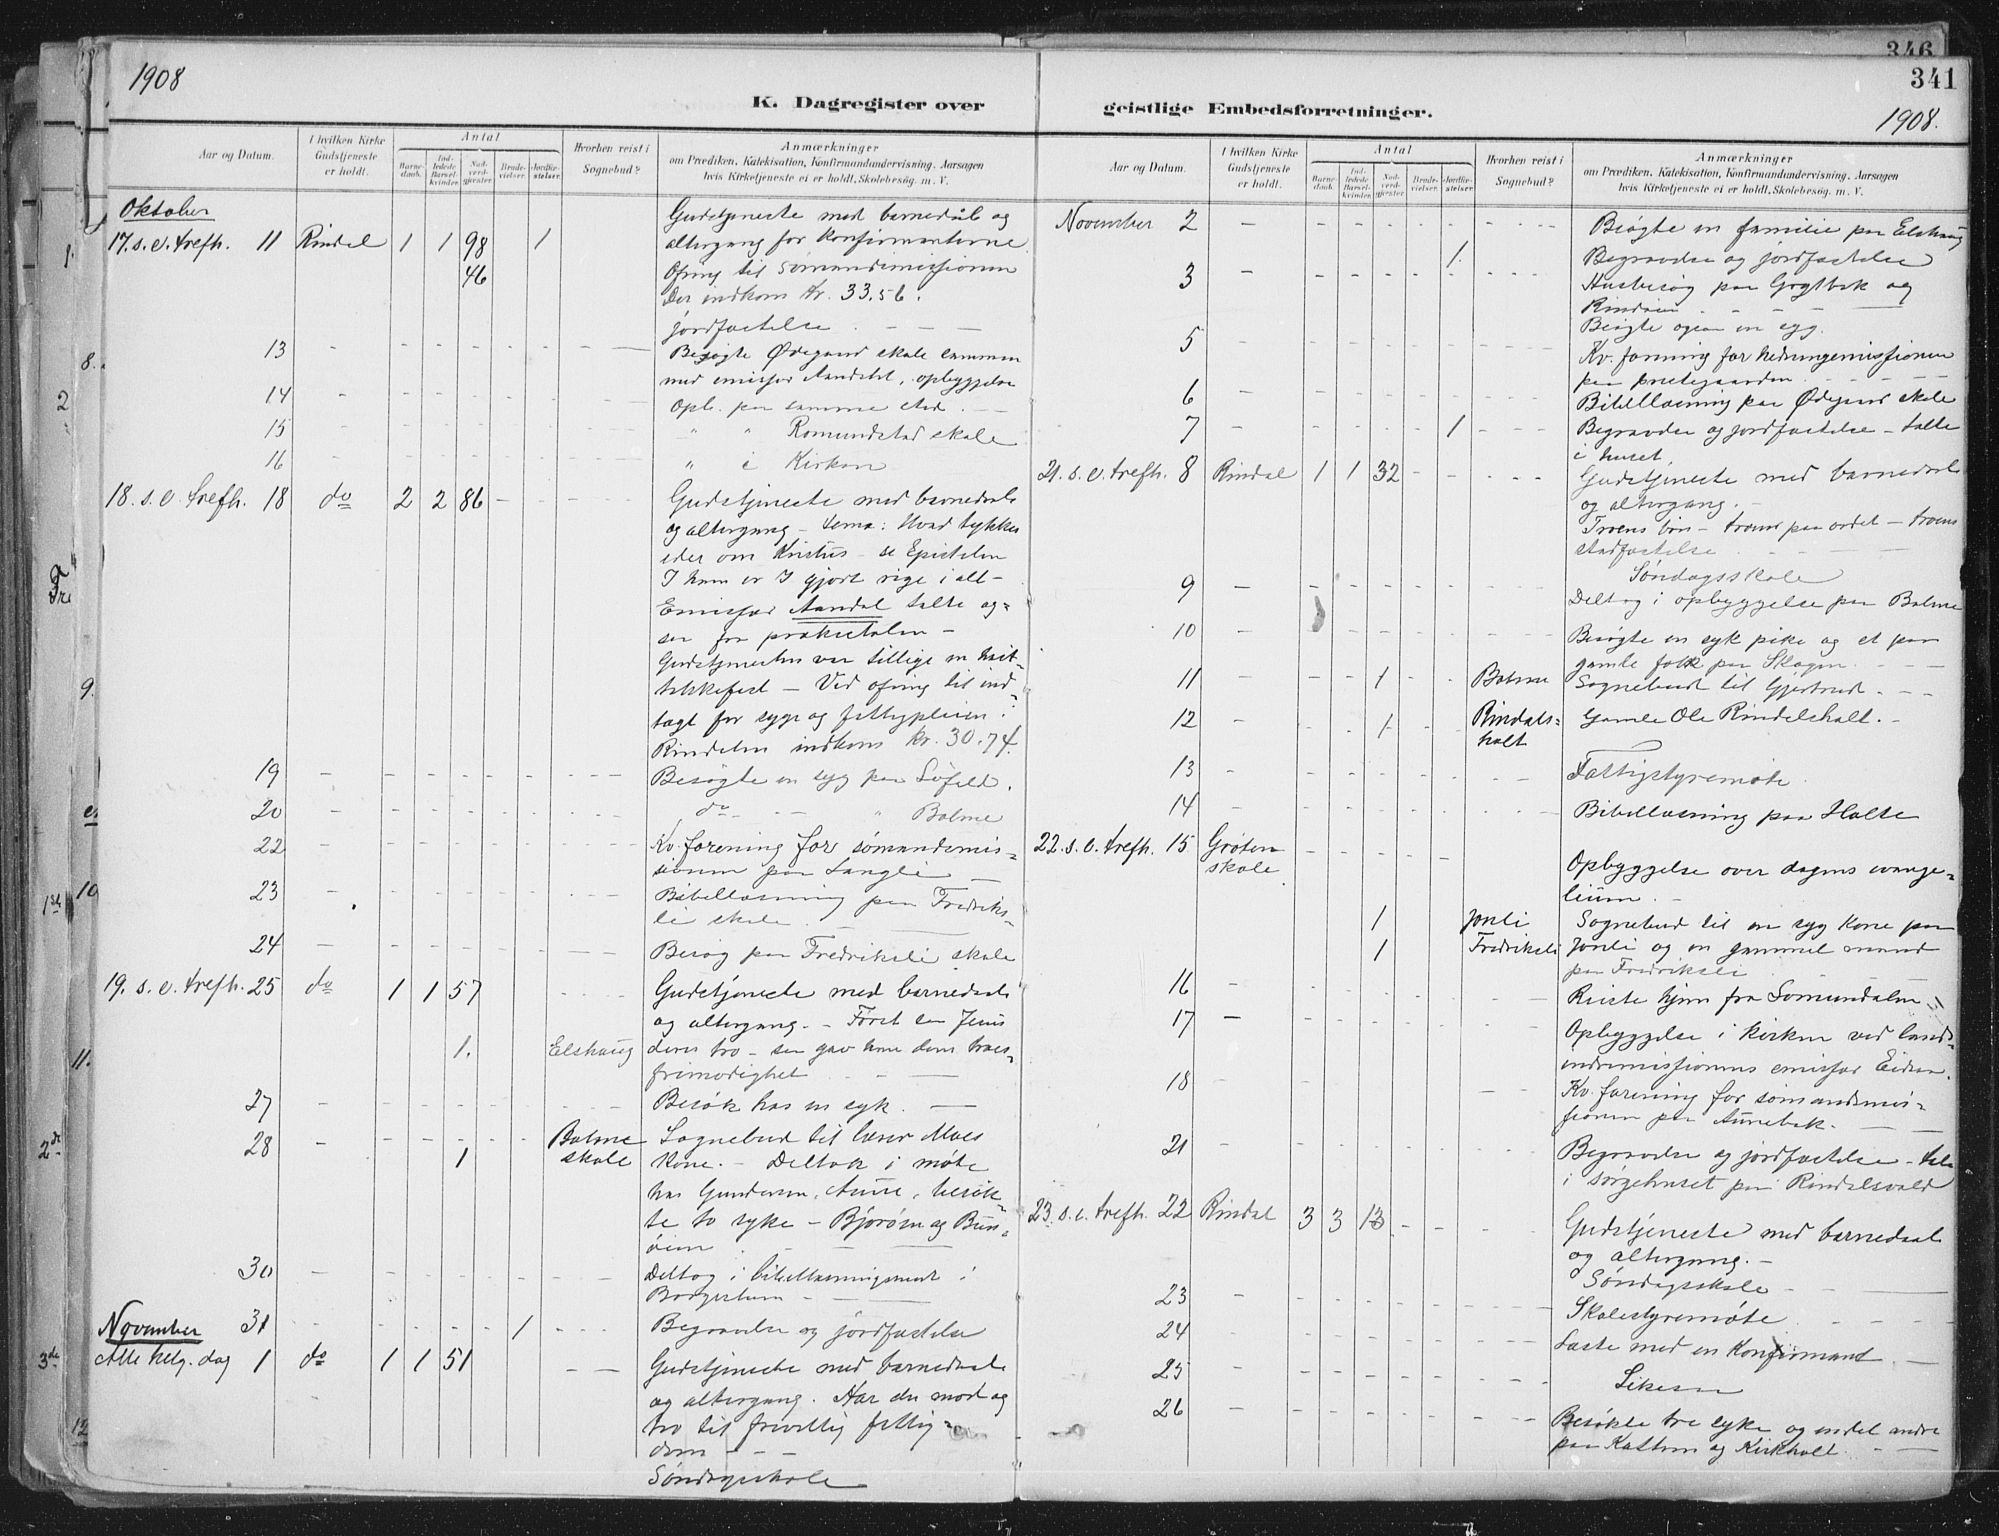 346
341
1908
1908.
K. Dagregister over geistlige Embedsforretninger.
Aar og Datum.
I hvilken Kirke Gudstjeneste er holdt.
Antal
Barne-daab.
Ind-ledede Barsel-kvinder.
Nad-verd-gjester.
Brude-vielser.
Jordfæ-stelser.
Hvorhen reist i Sognebud?
Anmærkninger
om Prædiken, Katekisation, Konfirmandundervisning, Aarsagen
hvis Kirketjeneste ei er holdt, Skolebesøg, m. V.
Oktober
17. s. e. trefh. 11 Rindal 1 1 98 1 Gudstjeneste med barnedåb og
altergang for konfirmanterne
46 Ofring til sømandsmissionen
Der indkom kr. 33.56.
jordfæstelse
13 Besøgte Ødegaard skole sammen
med emissær Aandahl, opbyggelse
14 Opb. paa samme sted
15 " " Romundstad skole
16 " i Kirken
18. s. e. trefh. 18 do 2 2 86 Gudstjeneste med barnedaab
og altergang - tema: Hvad tykkes
eder om Kristus - se Epistelen
I ham er I gjort rige i alt -
Emissær Aandal talte og-
saa fra prækestolen -
Gudstjenesten var tillige en høst-
takkefest - Ved ofring til ind-
tægt for syge og fattigpleien i
Rindalen indkom kr. 30.74.
19 Besøgte en syg paa Løfald.
20 do " Bolme
22 Kv. forening for sømandsmis-
sionen paa Langli
23 Bibellæsning paa Fredriks-
li skole
24 Besøg paa Fredriksli skole
19. s. e. trefh. 25 do 1 1 57 Gudstjeneste med barnedaab
og altergang. - Først saa Jesus
1. Elshaug deres tro - saa gav han dem troes-
frimodighet
27 Besøk hos en syk.
28 1 Bolme skole Sognebud til lærer Moes
kone. - Deltok i møte
hos Gundersen, Aune, besøk-
te to syke - Bjørøm og Bun-
øien
30 Deltog i bibellæsningsmøte i
Borgestuen
31 1 Begravelse og jordfæstelse
November
Alle helg. dag 1 do 1 1 51 Gudstjeneste med barnedaab
og altergang. Har du mod og
tro til frivillig fattig-
dom
Søndagsskole
Aar og Datum.
I hvilken Kirke Gudstjeneste er holdt.
Antal
Barne-daab.
Ind-ledede Barsel-kvinder.
Nad-verd-gjester.
Brude-vielser.
Jordfæ-stelser.
Hvorhen reist i Sognebud?
Anmærkninger
om Prædiken, Katekisation, Konfirmandundervisning, Aarsagen
hvis Kirketjeneste ei er holdt, Skolebesøg, m. V.
November 2 Besøgte en familie paa Elshaug
1. Begravelse og jordfæstelse
3 Husbesøg paa Gogtbek og
Rindøien
Besøgte ogsaa en syg.
5 Kv. forening for hedningemissionen
paa prestegaarden
6 Bibellæsning paa Ødegaard skole
7 1 Begravelse og jordfæstelse - talte
i huset.
21. s. e. trefh. 8 Rindal 1 1 32 Gudstjeneste med barnedaab
og altergang. -
Troens bøn - troens paa ordet - troens
stadfæstelse
Søndagsskole
9 Deltog i opbyggelse paa Bolme
10 Besøgte en syk pike og et par
gamle folk paa Skogen
11 1 Bolme Sognebud til Gjertrud
12 1 Rindals-holt Gamle Ole Rindalsholt. -
13 Fattigstyremøte
14 Bibellæsning paa Holte
22. s. e. trefh. 15 Grøten skole Opbyggelse over dagens evange-
lium. -
1 Jonli Sognebud til en syg kone paa
1 Fredriksli Jonli og en gammel mand
paa Fredriksli
16 Reiste hjem fra Lomundalen
17 Opbyggelse i kirken ved lands-
indremissionens emissær Eidsaa.
18 Kv. forening for sømandsmis-
sionen paa Aunebak.
21 Begravelse og jordfæstelse - tale
i sørgehuset paa Rindalsvald
23. s. e. trefh. 22 Rindal 3 3 13 Gudstjeneste med barnedaab
og altergang. -
Søndagsskole
23 Skolestyremøte
24 Læste med en Konfirmand
25 Likesaa
26 Besøkte tre syke og endel andre
paa Kattem og Kirkholt